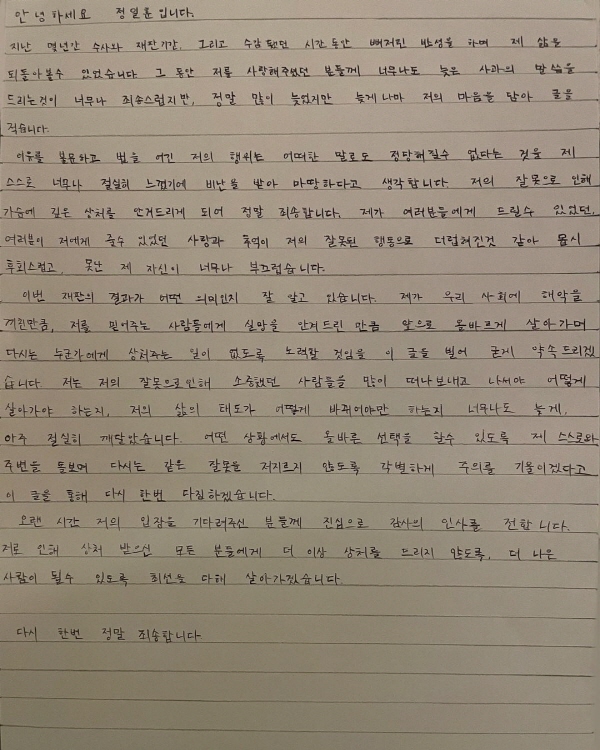 안녕하세요 정일훈입니다.
지난 몇년간 수사와 재판기간, 그리고 수감됐던 시간동안 뼈저린 반성을 하며 제 삶을
되돌아볼수 있었습니다 그 동안 저를 사랑해주셨던 분들께 너무나도 늦은 사과의 말씀을
드리는것이 너무나 죄송스럽지만, 정말 많이 늦었지만 늦게나마 저의 마음을 담아 글을
적습니다.
이유를 불문하고 법을 어긴 저의 행위는 어떠한 말로도 정당해질수 없다는 것을 제
스스로 너무나 절실히 느꼈기에 비난을 받아 마땅하다고 생각합니다. 저의 잘못으로 인해
가슴에 깊은 상처를 안겨드리게 되어 정말 죄송합니다. 제가 여러분들에게 드릴수 있었던,
여러분이 저에게 줄수 있었던 사랑과 추억이 저의 잘못된 행동으로 더럽혀진것 같아 몹시
후회스럽고, 못난 제 자신이 너무나 부끄럽습니다.
이번 재판의 결과가 어떤 의미인지 잘 알고 있습니다. 제가 우리 사회에 해악을
끼친만큼, 저를 믿어주는 사람들에게 실망을 안겨드린 만큼 앞으로 올바르게 살아가며
다시는 누군가에게 상처주는 일이 없도록 노력할 것임을 이 글을 빌어 굳게 약속드리겠
습니다. 저는 저의 잘못으로인해 소중했던 사람들을 많이 떠나보내고 나서야 어떻게
살아가야 하는지, 저의 삶의 태도가 어떻게 바뀌어야만 하는지 너무나도 늦게,
아주 절실히 깨달았습니다. 어떤 상황에서도 올바른 선택을 할수 있도록 제 스스로와
주변을 돌보며 다시는 같은 잘못을 저지르지 않도록 각별하게 주의를 기울이겠다고
이 글을 통해 다시 한번 다짐하겠습니다.
오랜 시간 저의 입장을 기다려주신 분들께 진심으로 감사의 인사를 전합니다.
저로 인해 상처 받으신 모든 분들에게 더 이상 상처를 드리지 않도록, 더 나은
사람이 될수 있도록 최선을 다해 살아가겠습니다.
다시 한번 정말 죄송합니다